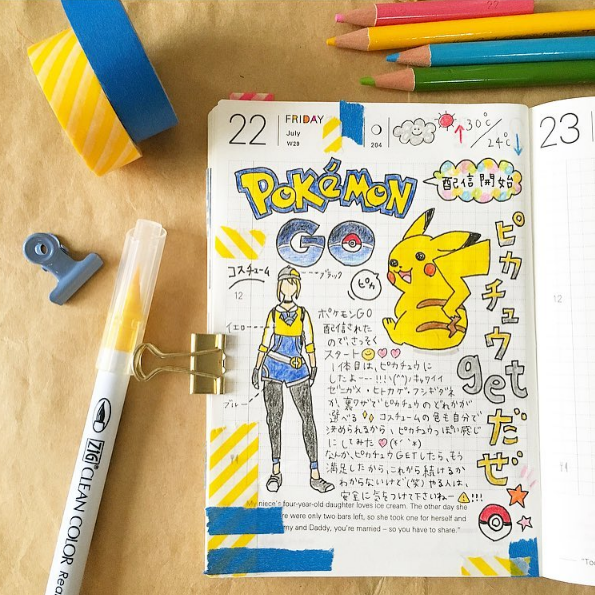 22
FRIDAY
July
W29
204
30℃/24℃
23
POKéMON
配信開始
GO
ピカチュウgetだぜ
コスチューム
ブラック
ピカ
12
イエロー
ブルー
ポケモンGO
配信された
のでさっそく
スタート
1体目は、ピカチュウに
したよーー!!!\(^^)キャワイイ
ゼニガメ・ヒトカゲ・フシギダネ
か、裏ワザでピカチュウのどれかが
選べる コスチュームの色も自分で
決められるから、ピカチュウっぽい感じ
にしてみた
なんか、ピカチュウGETしたら、もう
満足したから、これから続けるか
わからないけど(笑)やる人は、
安全に気をつけて下さいねー!!!
My niece's four-year-old daughter loves ice cream. The other day she
ere were only two bars left, so she took one for herself and
my and Daddy, you're married – so you have to share."
12
14
"Too
ZIG CLEAN COLOR Rea